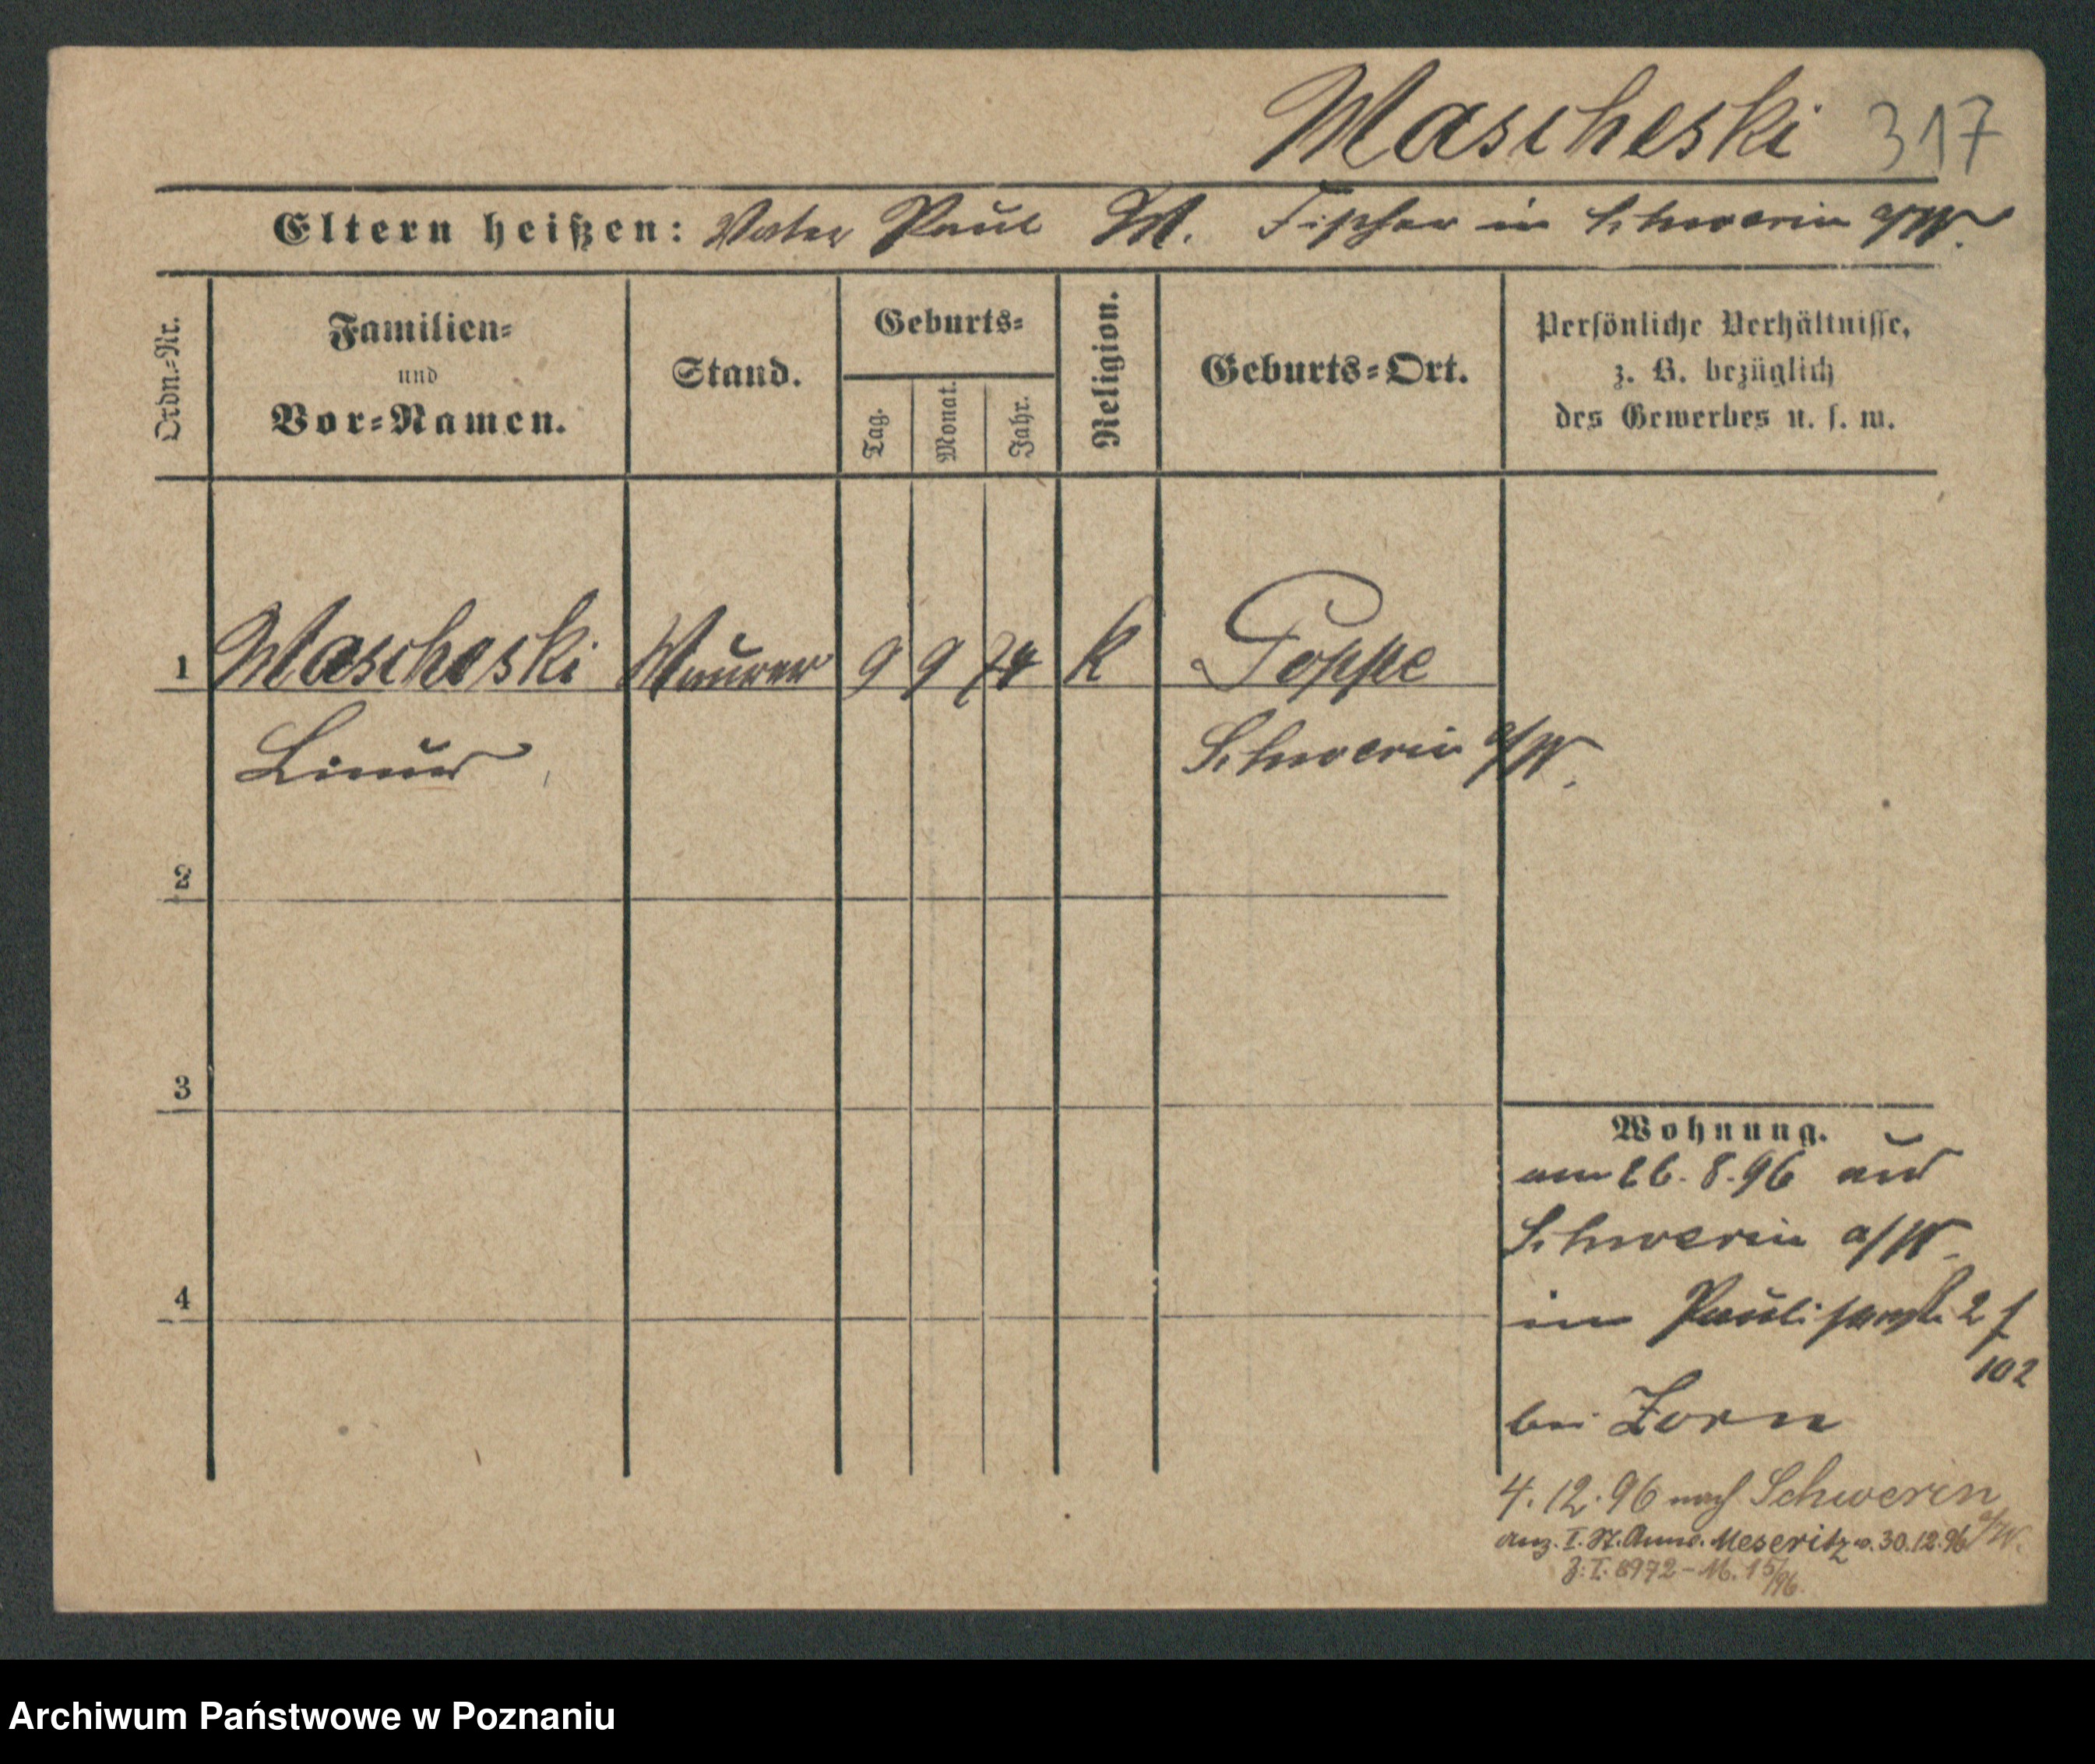 Mascheski 317
Eltern heißen: Vater Paul M. Fischer in Schwerin a/W.
Ordn.-Nr.
Familien-
und
Vor-Namen.
Stand.
Geburts-
Tag.
Monat.
Jahr.
Religion.
Geburts-Ort.
Persönliche Verhältnisse,
z. B. bezüglich
des Gewerbes u. s. w.
1 Mascheski Maurer 9 9 74 K Poppe
Linus Schwerin a/W.
2
3
4
Wohnung.
am 26.8.96 aus
Schwerin a/W.
in 2
102
bei Zorn
4.12.96 nach Schwerin
a/W.
anz. I. St. Anw. Meseritz v. 30.12.96
Z: I. 8972 - M. 15/96.
Archiwum Państwowe w Poznaniu